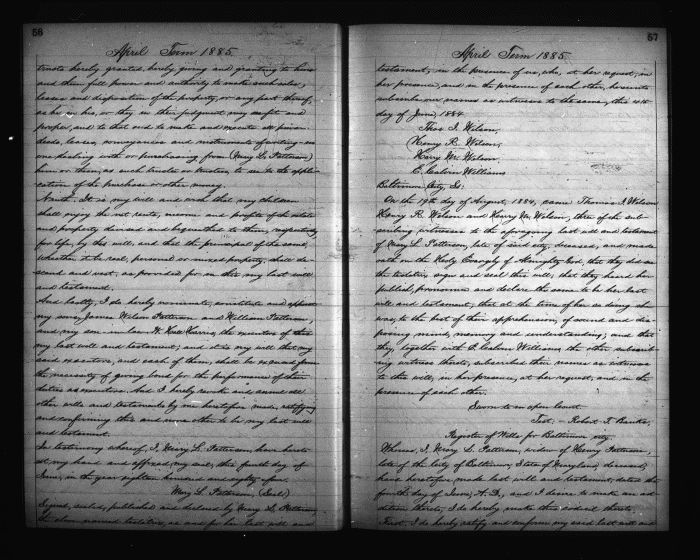 56
April Term 1885.
trusts hereby granted, hereby giving and granting to him
and them full power and authority to make such sales,
leases and disposition of the property, or any part thereof,
as he or his, or they in their judgment may see fit and
proper, and to that end to make and execute all
deeds, leases, conveyances and instruments of writing
one dealing with or purchasing from (Mary L. Patterson)
him or them, as such trustee or trustees, to see to the appli-
cation of the purchase or other money.
Ninth. It is my will and wish that my children
shall enjoy the net rents, income and profits of the estate
and property devised and bequeathed to them, respectively
for life, by this will, and that the principal of the same,
whether it be real, personal or mixed property, shall de-
scend and vest, as provided for in this my last will
and testament.
And lastly, I do hereby nominate, constitute and appoint
my sons James Wilson Patterson and William Patterson,
and my son-in-law H. Harris, the executors of this
my last will and testament; and it is my will that my
said executors, and each of them, shall be excused from
the necessity of giving bond for the performance of their
duties as executors. And I hereby revoke and annul all
other wills and testaments by me heretofore made, ratifying
and confirming this and none other to be my last will
and testament.
In testimony whereof, I, Mary L. Patterson, have hereto
set my hand and affixed my seal, this fourth day of
June, in the year eighteen hundred and eighty four.
Mary L. Patterson, (Seal)
Signed, sealed, published and declared by Mary L. Patterson
the above named testatrix, as and for her last will and
57
April Term 1885.
testament, in the presence of us, who, at her request, in
her presence, and in the presence of each other, hereunto
subscribe our names as witnesses to the same, this 4th
day of June, 1884.
Thos I. Wilson,
Henry R. Wilson,
Henry M. Wilson,
C. Calvin Williams
Baltimore City, Ss:
On the 19th day of August, 1884, came Thomas I. Wilson
Henry R. Wilson and Henry M. Wilson, three of the sub-
scribing witnesses to the aforegoing last will and testament
of Mary L. Patterson, late of said city, deceased, and made
oath on the Holy Evangely of Almighty God, that they did see
the testatrix, sign and seal this will, that they heard her
publish, pronounce and declare the same to be her last
will and testament; that at the time of her so doing she
was, to the best of their apprehension, of sound and dis-
posing mind, memory and understanding; and that
they, together with C. Calvin Williams, the other subscrib-
ing witness thereto, subscribed their names as witnesses
to this will, in her presence, at her request, and in the
presence of each other.
Sworn to in open Court
Test. Robert T. Banks,
Register of Wills for Baltimore city.
Whereas, I, Mary L. Patterson, widow of Henry Patterson,
late of the City of Baltimore, State of Maryland, deceased,
have heretofore made last will and testament, dated the
fourth day of June, A.D., and I desire to make an ad-
dition thereto, I do hereby make this codicil thereto.
First, I do hereby ratify and confirm my said last will and